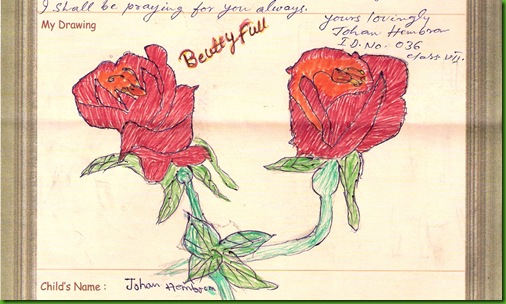 I shall be praying for you always.
yours lovingly
Johan Hembrom
I.D. No. 036
class VII.
My Drawing
BeuttyFull
Child's Name : Johan Hembrom